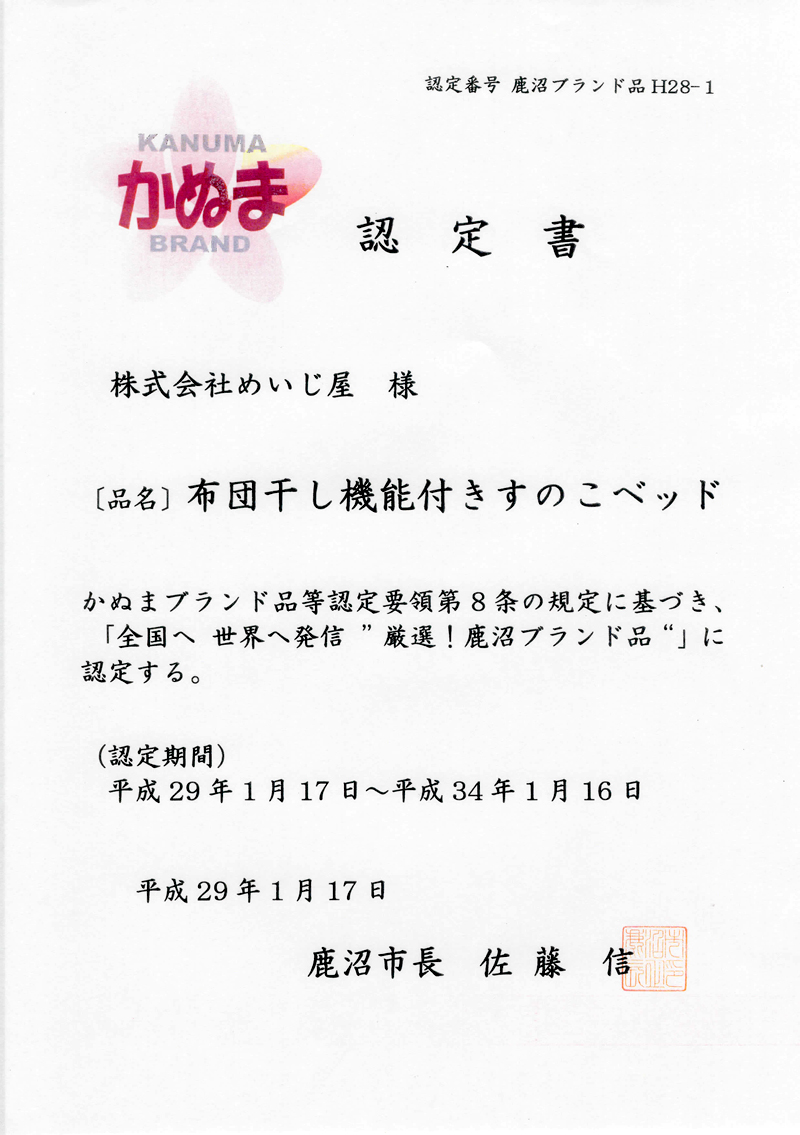 認定番号 鹿沼ブランド品H28-1
KANUMA
かぬま
BRAND
認 定 書
株式会社めいじ屋 様
〔品名〕布団干し機能付きすのこベッド
かぬまブランド品等認定要領第8条の規定に基づき、
「全国へ 世界へ発信 ”厳選！鹿沼ブランド品“」に
認定する。
（認定期間）
平成29年1月17日～平成34年1月16日
平成29年1月17日
鹿沼市長 佐 藤 信